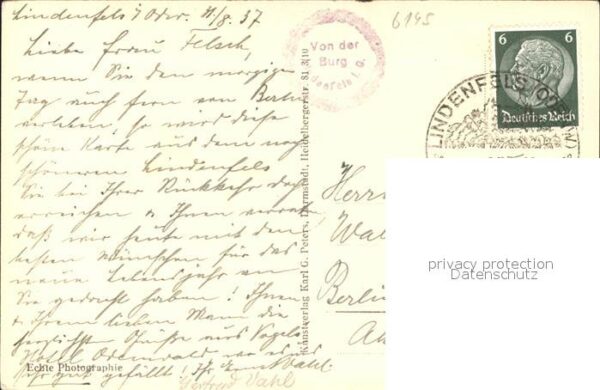 Lindenfels i/Oder. 11/8. 37
Liebe Frau Felsch,
wenn Sie den morgigen
Tag auch fern von Berlin
verleben, so wird diese
schöne Karte aus dem noch
schöneren Lindenfels
Sie bei Ihrer Rückkehr doch
erreichen u. Ihnen verraten
daß wir heute mit den
besten Wünschen für das
neue Lebensjahr an
Sie gedacht haben! Ihnen
u. Ihrem lieben Mann die
herzlichsten Grüße aus
Hotel Odenwald
sehr gut gefällt! Ihr
Gertrud Vahl
Echte Photographie
Kunstverlag Karl G. Peters, Darmstadt, Heidelbergerstr. 81 3/10
Von der
Burg
Lindenfels i. O.
6145
6 6
Deutsches Reich
LINDENFELS
Herrn
Wal
Berlin
privacy protection
Datenschutz